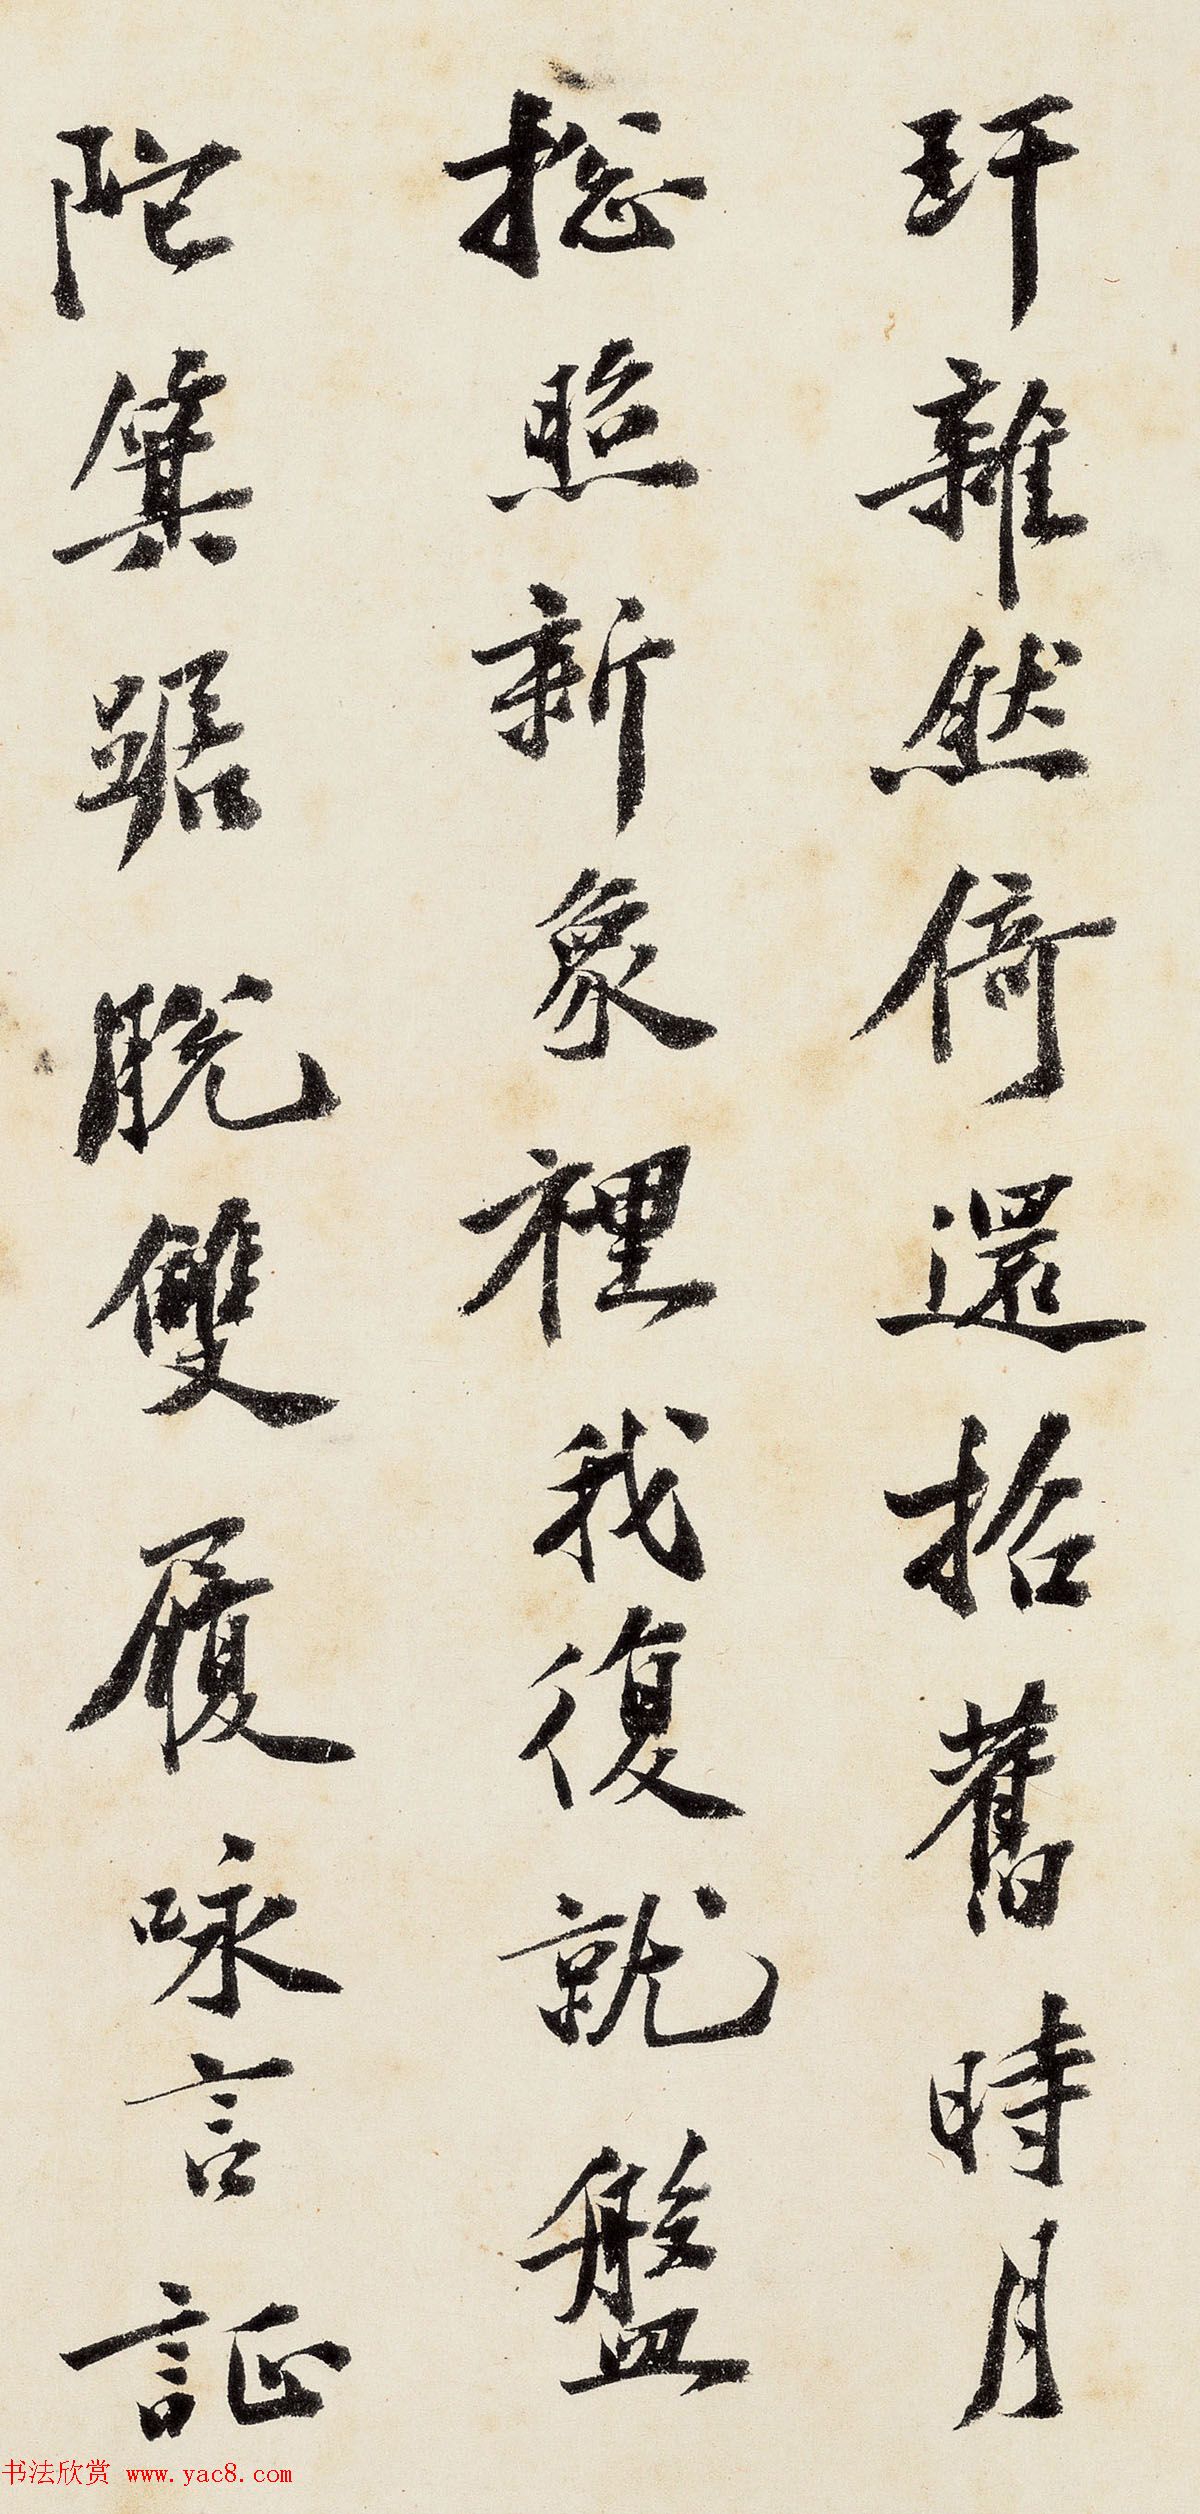 玕雜然倚還拾舊時月
揔照新象裡我復就盤
陀箕踞脫雙履咏言証
书法欣赏 www.yac8.com